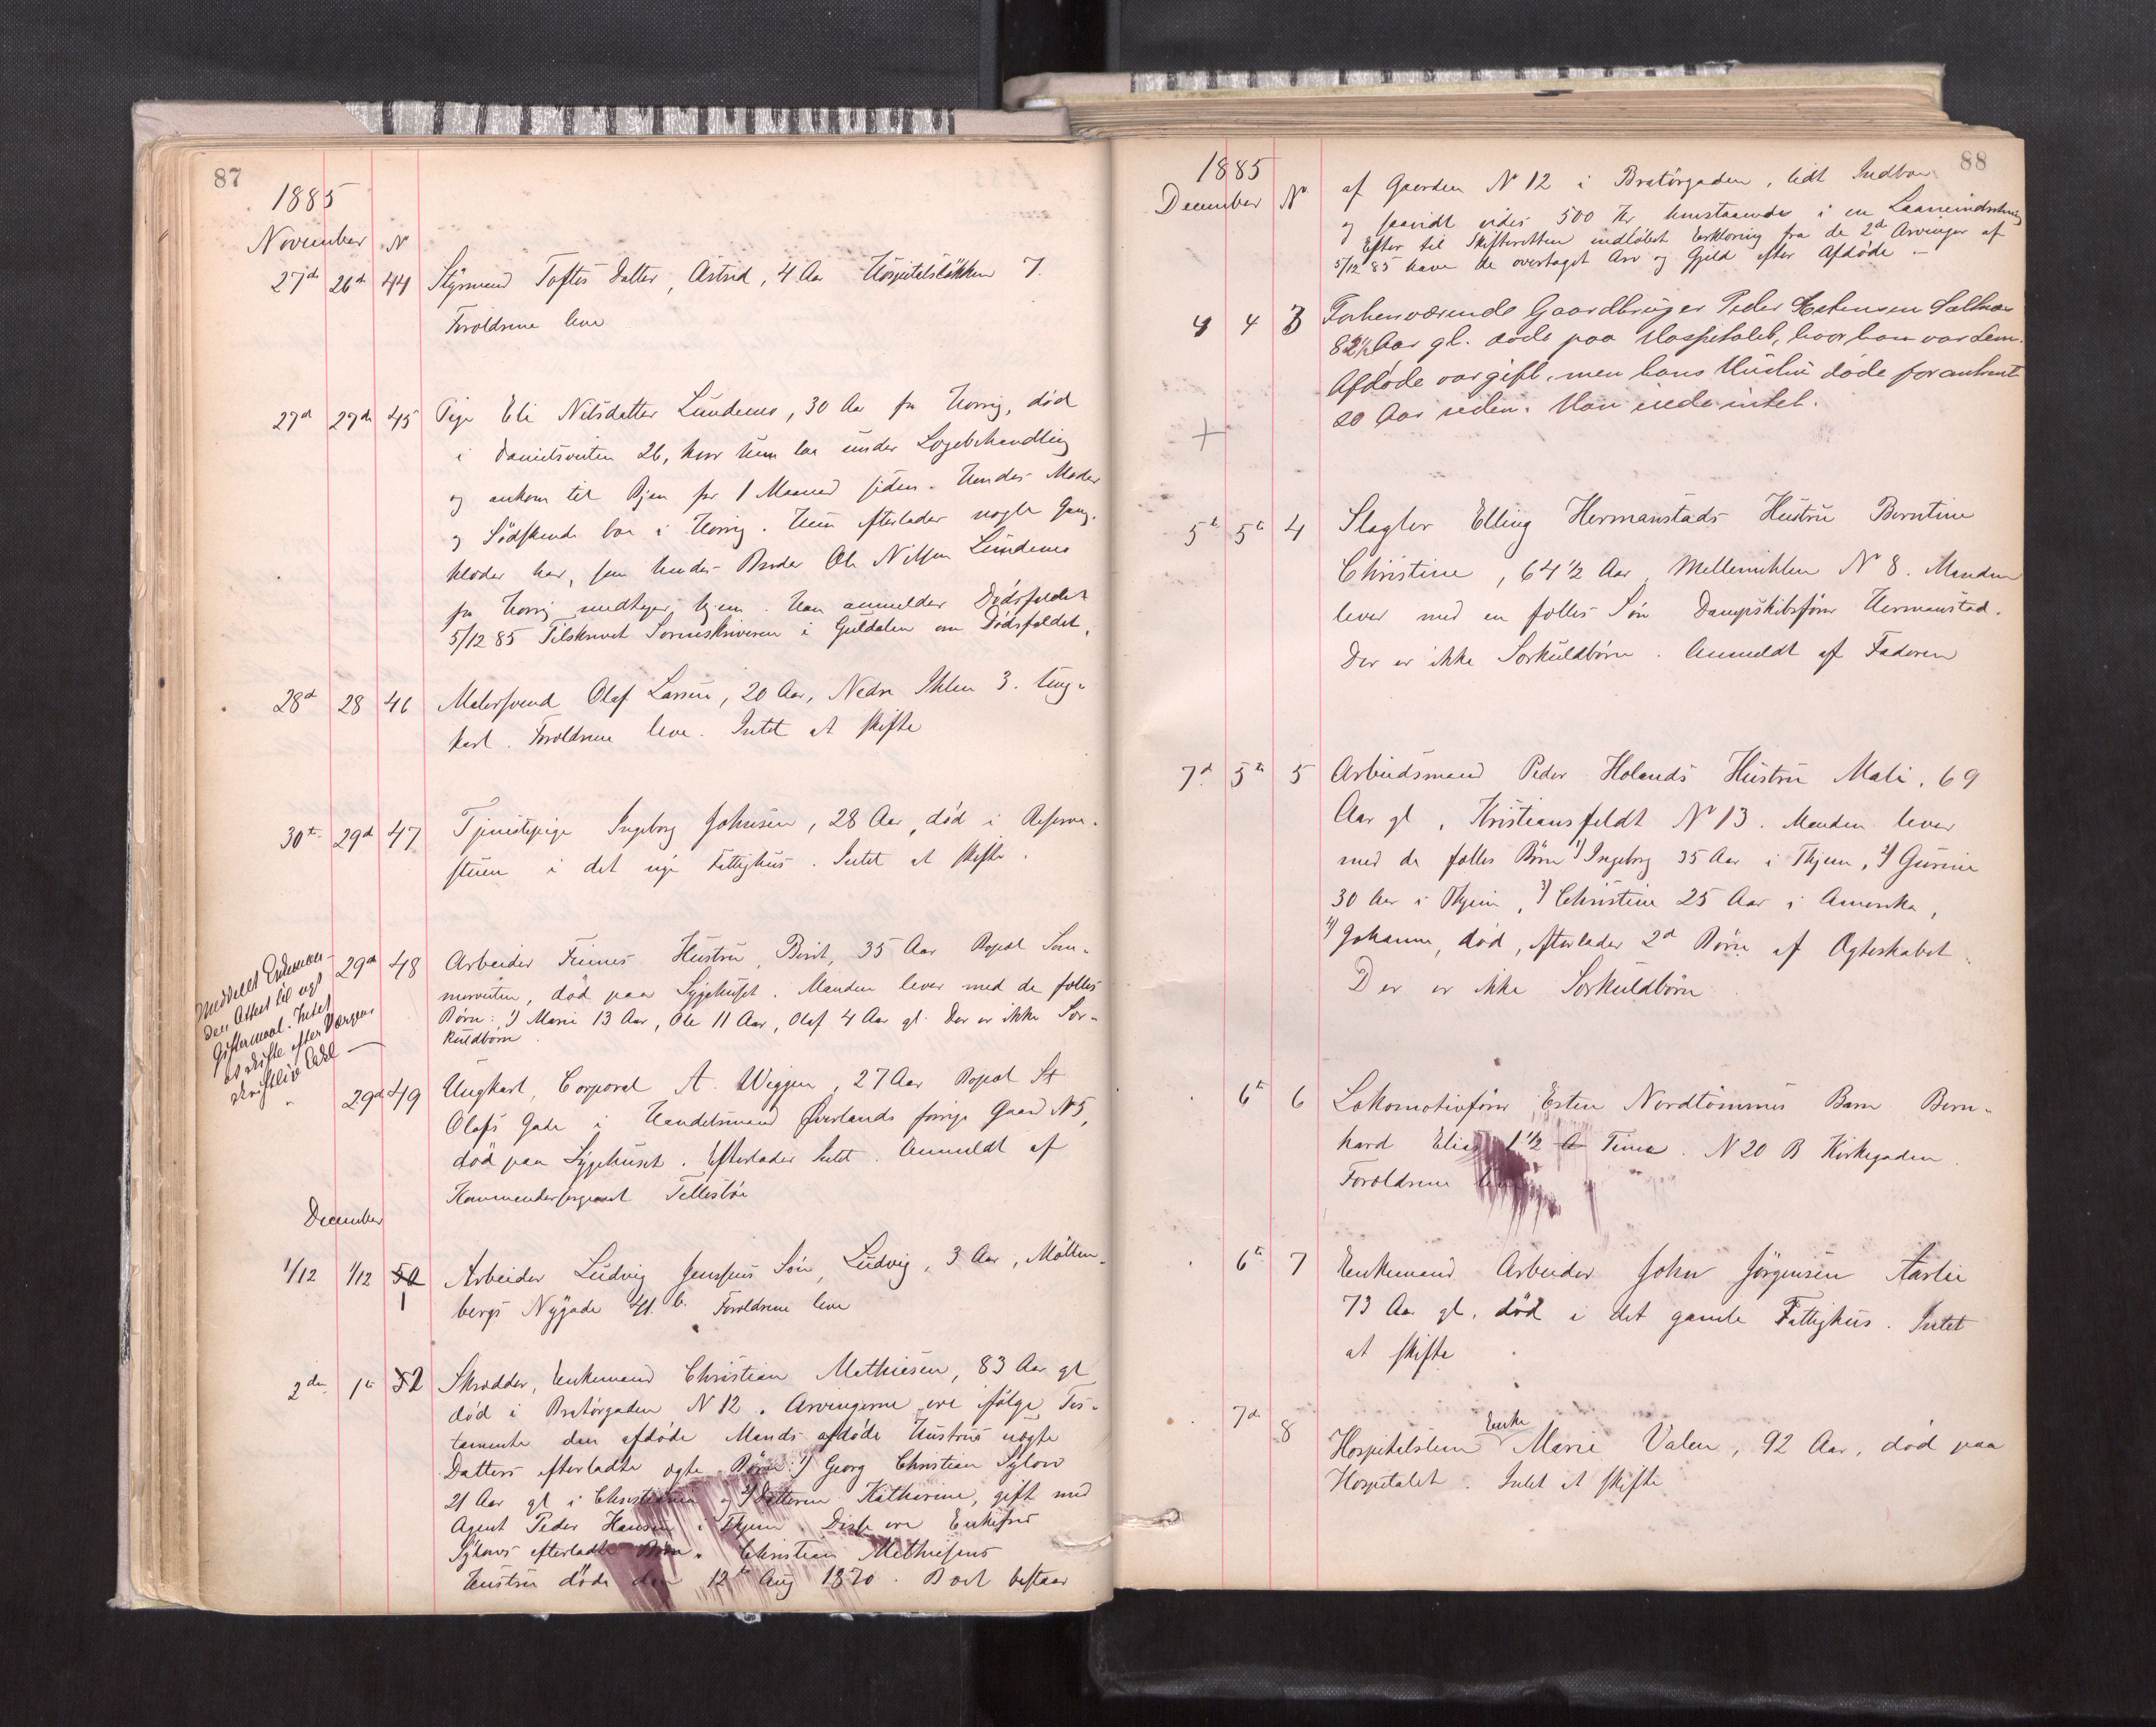 87
1885
November N
27de 26de 44 Styrmand Toftes Datter, Astrid, 4 Aar Hospitalsløkken 7.
Forældrene leve
27d 27de 45 Pige Eli Nilsdatter Lundemo, 30 Aar fra Horrig, død
i Danielsveiten 26, hvor hun laa under Lægebehandling
og ankom til Byen for 1 Maaned siden. Hendes Moder
og Södskende bor i Horrig. Hun efterlader nogle Gang-
klæder her, som hendes Broder Ole Nilsen Lundemo
fra Horrig medtager hjem. Han anmelder Dödsfaldet
5/12 85 Tilskrevet Sorenskriveren i Guldalen om Dödsfaldet.
28d 28 46 Malersvend Olaf Larsen, 20 Aar, Nedre Ihlen 3. Ung-
karl. Forældrene leve. Intet at skifte
30te 29d 47 Tjenestepige Ingeborg Johnsen, 28 Aar, död i Reserve-
stuen i det nye Fattighus. Intet at skifte.
Meddelt Enkeman-
den Attest til nyt
Giftermaal. Intet
at skifte efter Værgens
skriftlig Erkl
29d 48 Arbeider Finnes Hustru, Berit, 35 Aar Bopæl Som-
merveiten, död paa Sygehuset. Manden lever med de fælles
Börn: 1) Marie 13 Aar, Ole 11 Aar, Olaf 4 Aar gl. Der er ikke Sær-
kuldbörn.
29d 49 Ungkarl, Corporal A. Wiggen, 27 Aar Bopæl St
Olafs Gade i Handelsmand Øverlands forrige Gaard N 5,
död paa Sygehuset. Efterlader Intet. Anmeldt af
Kommandersergeant Tellesbö
December
1/12 1/12 50 1 Arbeider Ludvig Jensens Sön, Ludvig, 3 Aar, Möllen-
bergs Nygade 41. b. Forældrene leve
2den 1te 52 Skrædder, Enkemand Christian Mathiesen, 83 Aar gl
död i Bratörgaden N 12. Arvingerne ere ifölge Tes-
tamente den afdöde Mands afdöde Hustrus ægte
Datters efterladte ægte Börn: 1) Georg Christian Sylow
21 Aar gl i Christiania og 2) Datteren Katherine, gift med
Agent Peder Hansen i Thjem. Disse ere Enkefru
Sylows efterladte Börn. Christian Mathiesens
Hustru döde den 12te Aug 1870. Boet bestaar
88
1885
December No
af Gaarden No 12 i Bratörgaden, lidt Indbo
og saavidt vides 500 Kr henstaaende i en Laaneindretning
Efter til Skifteretten indlöbet Erklæring fra de 2de Arvinger af
5/12 85 have de overtaget Arv og Gjæld efter Afdöde –
4 4 3 Forhenværende Gaardbruger Peder Estensen
82½ Aar gl. døde paa Hospitalet, hvor han var Lem.
Afdøde var gift, men hans Hustru døde for omtrent
20 Aar siden. Han eiede intet.
5te 5te 4 Slagter Elling Hermanstads Hustru Berntine
Christine, 64½ Aar, Mellemihlen No 8. Manden
lever med en fælles Sön Dampskibsförer Hermanstad.
Der er ikke Særkuldbörn. Anmeldt af Faderen
7d 5te 5 Arbeidsmand Peder Holands Hustru Mali, 69
Aar gl, Kristiansfeldt No 13. Manden lever
med de fælles Börn 1) Ingeborg 35 Aar i Thjem, 2) Gurine
30 Aar i Thjem, 3) Christine 25 Aar i Amerika,
4) Johanne, död, efterlader 2de Börn af Ægteskabet.
Der er ikke Særkuldbörn
6te 6 Lokomotivförer Esten Nordtömmes Barn Bern-
hard Elias 1½ A Time. N 20 B Kirkegaden.
Forældrene leve
6te 7 Enkemand Arbeider John Jörgensen Aarlie
73 Aar gl, död i det gamle Fattighus. Intet
at skifte
7de 8 Hospitalslem Enke Marie Valen, 92 Aar, död paa
Hospitalet. Intet at skifte